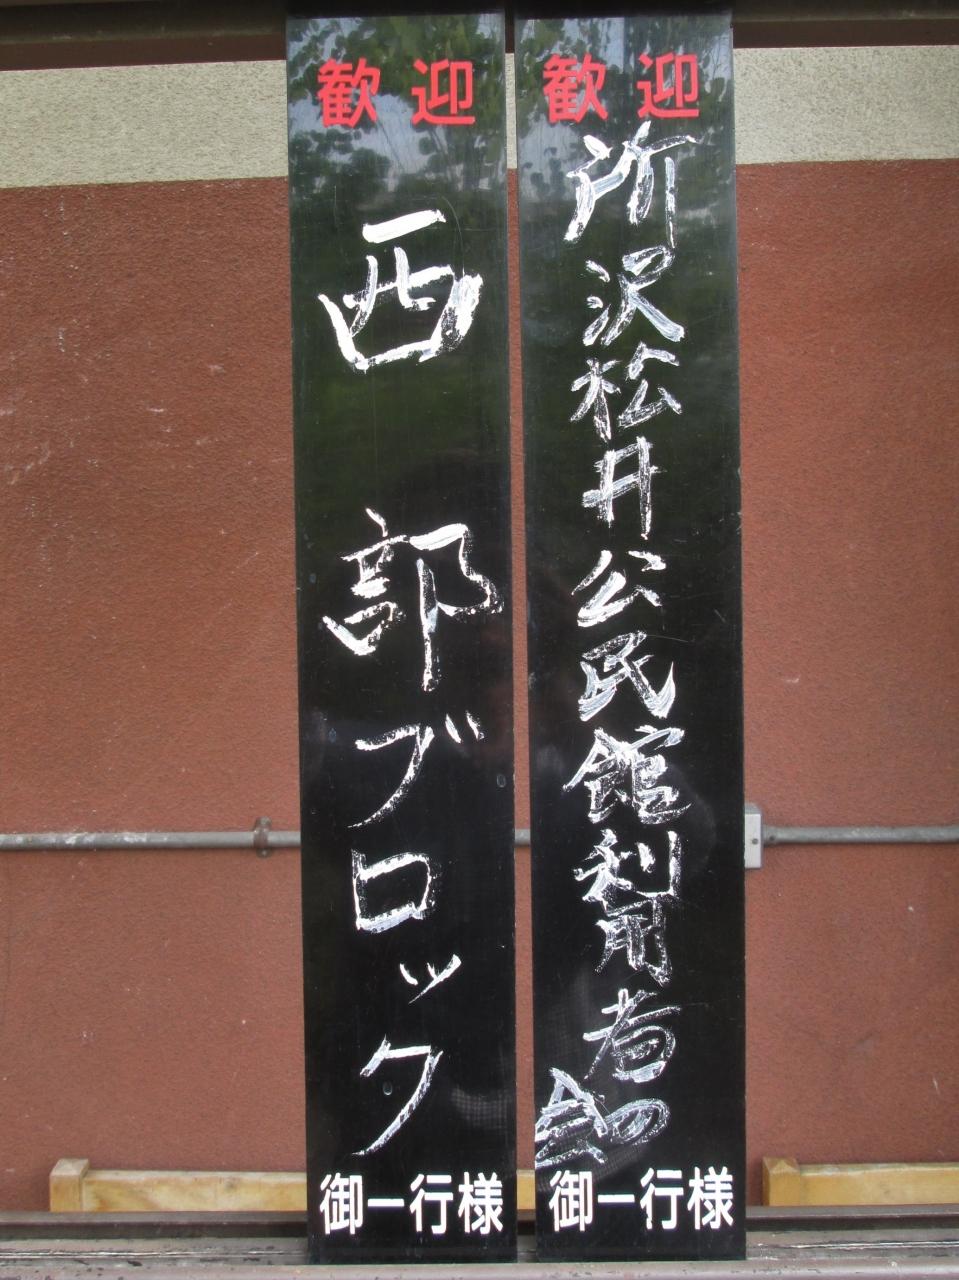 歓迎
所沢松井公民館利用者
御一行様
歓迎
西部ブロック
御一行様